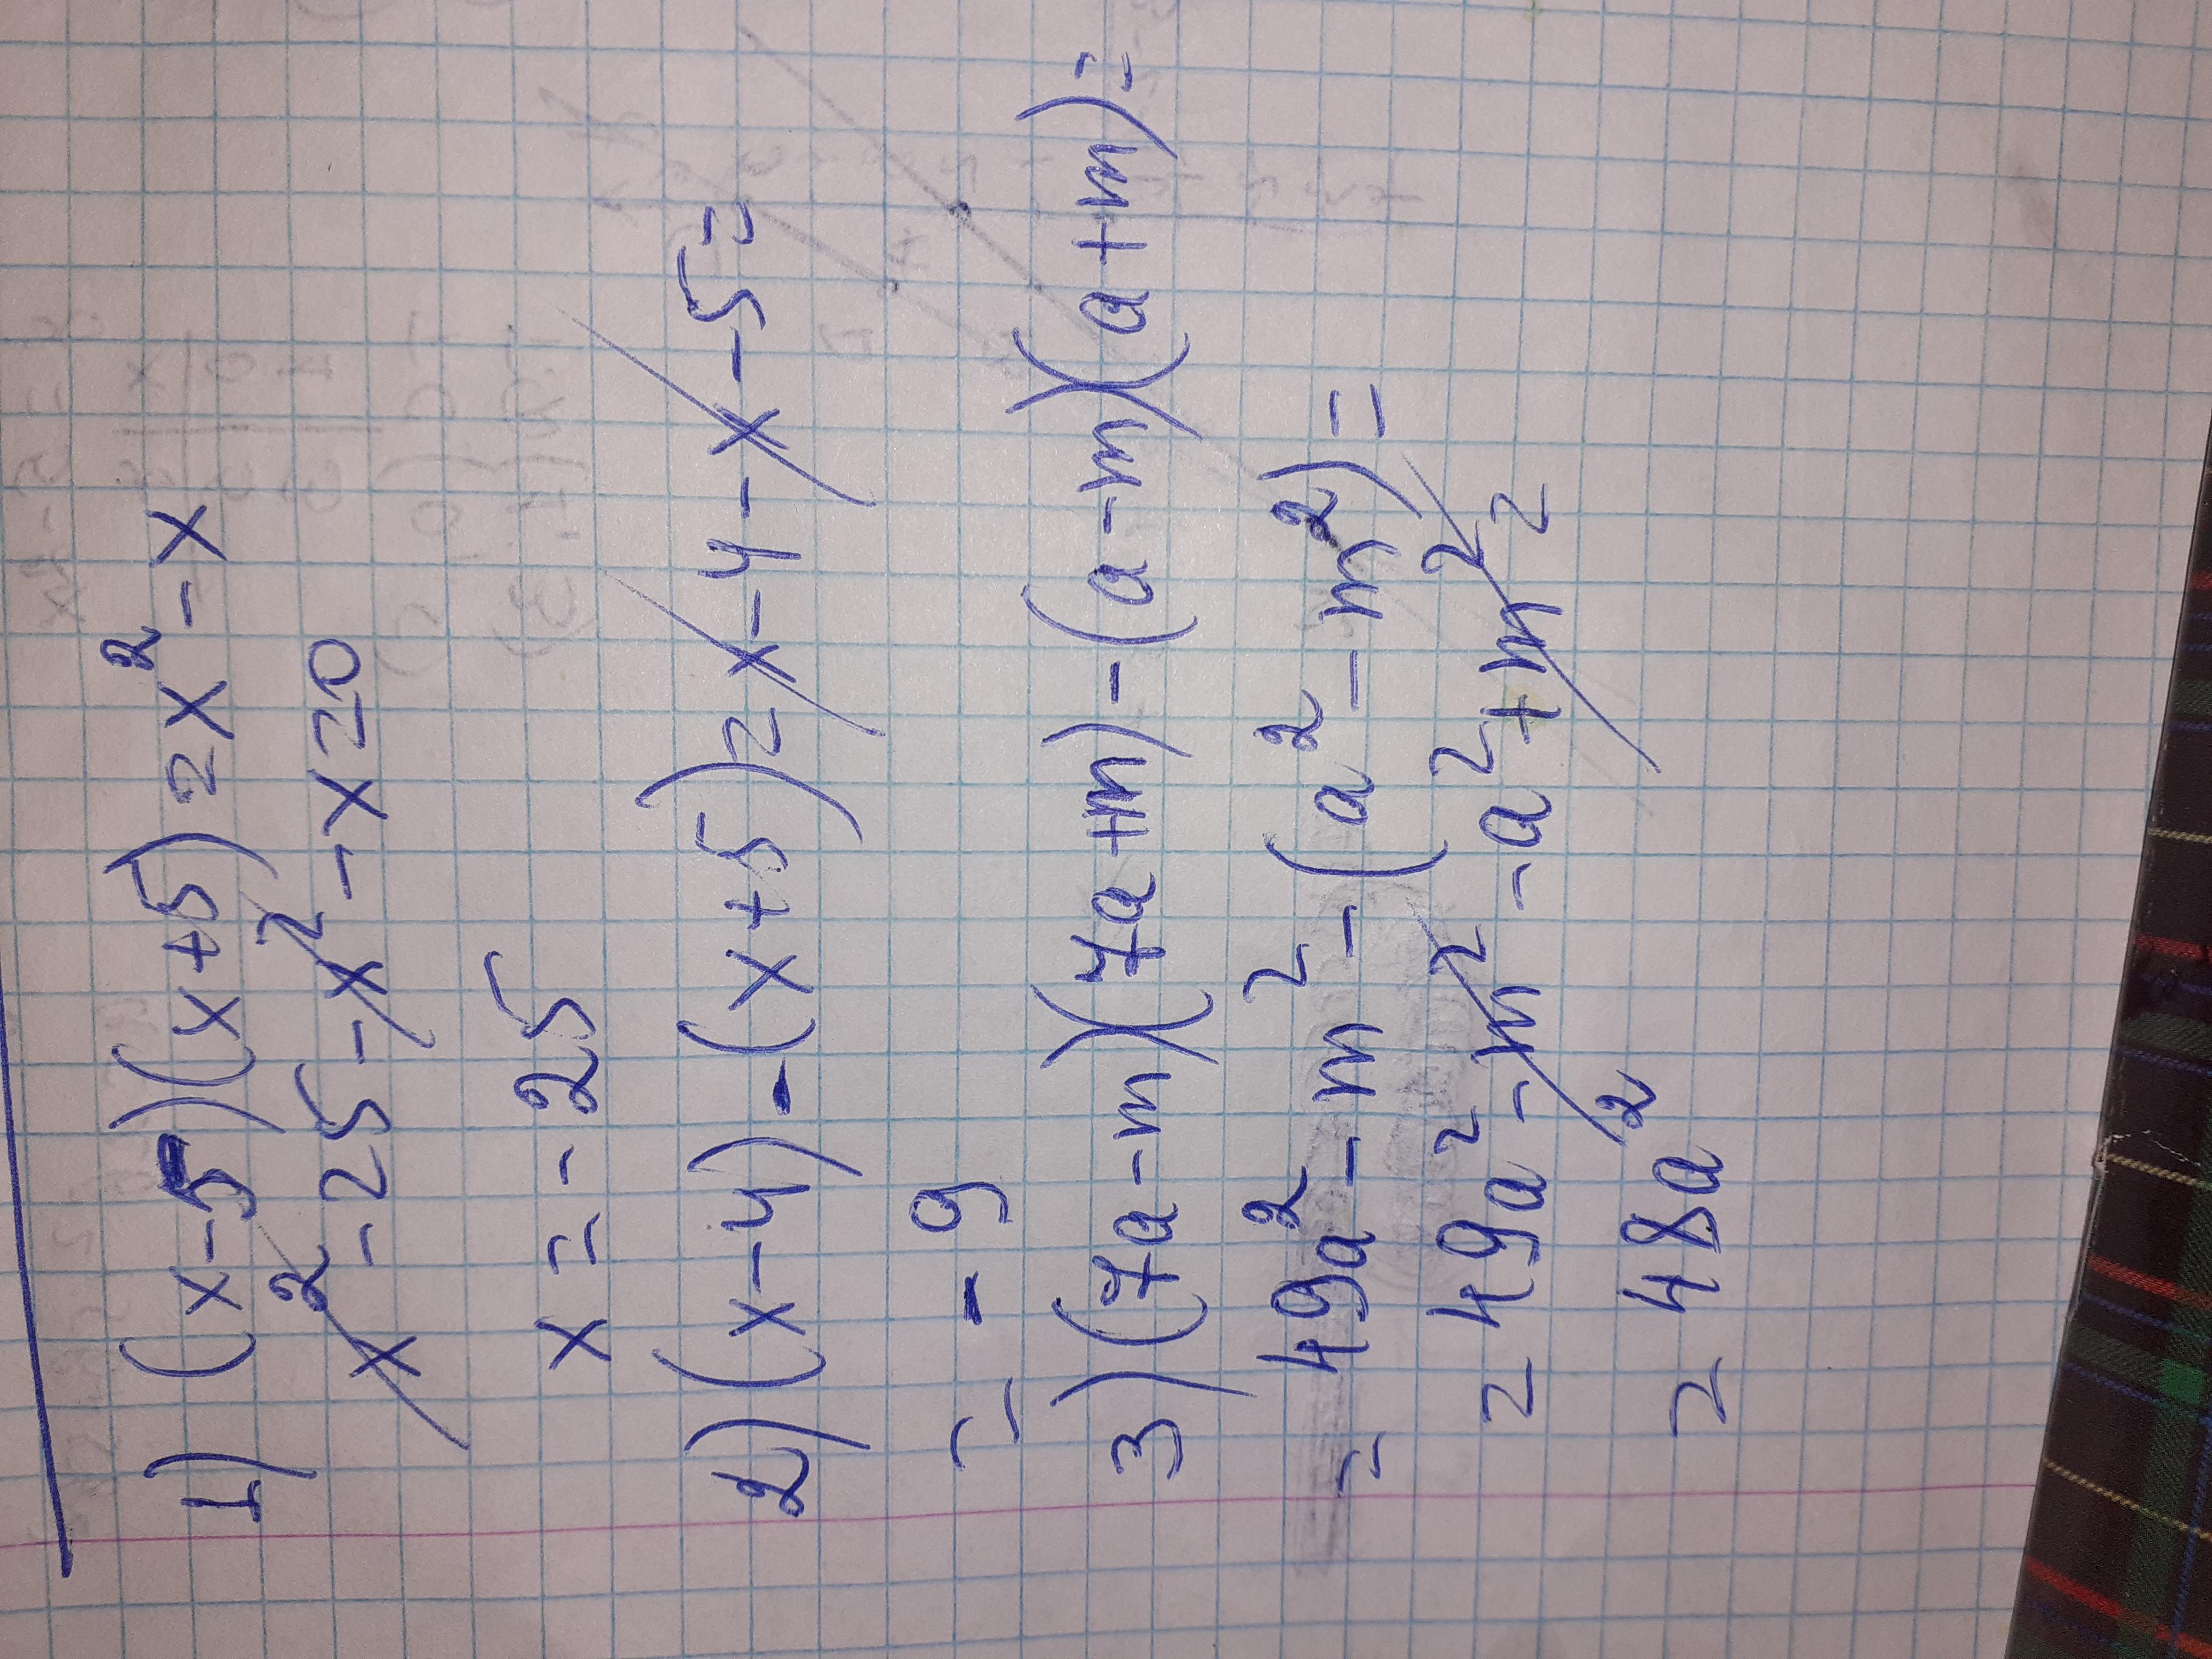 1) (x-5)(x+5) = x² - x
x² - 25 - x² - x = 0
x = - 25
2) (x-4) - (x+5) = x - 4 - x - 5 =
= - 9
3) (7a-m)(7a+m) - (a-m)(a+m) =
= 49a² - m² - (a² - m²) =
= 49a² - m² - a² + m² =
= 48a²